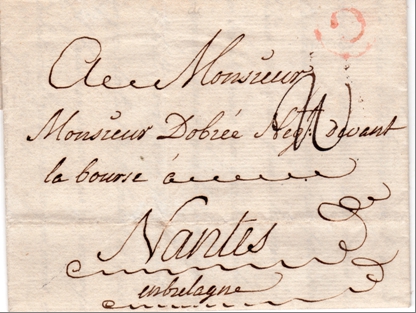 A Monsieur
Monsieur Dobrée Negt. devant
la bourse à
Nantes
en bretagne